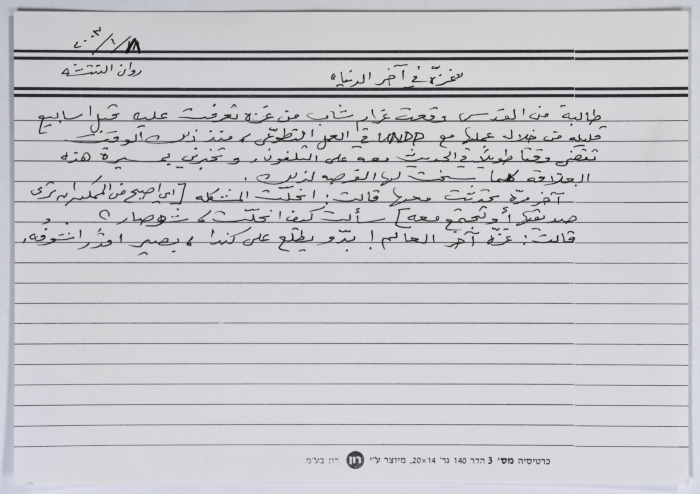 ٢٠٠٣/١/٢٨
روان النتشة
"غزة في آخر الدنيا"
طالبة من القدس وقعت غرام شاب من غزة تعرفت عليه قبل أسابيع
قليلة من خلال عملها مع UNDP في العمل التطوعي، منذ ذلك الوقت
تقضي وقتاً طويلاً في الحديث معه على التلفون، وتخبرني بمسيرة هذه
العلاقة كلما سنحت لها الفرصة لذلك.
آخر مرة تحدثت معها قالت: انحلّت المشكلة [أي أصبح من الممكن ان ترى
صديقها أو تجتمع معه] سألت كيف انحلّت، شو صار؟
قالت: غزّة آخر العالم! بدّو يطلع على كندا، بصير اقدر اشوفه.
כרטיסיה מס' 3 הדר 140 גר' 14×20, מיוצר ע"י רון רון בע"מ